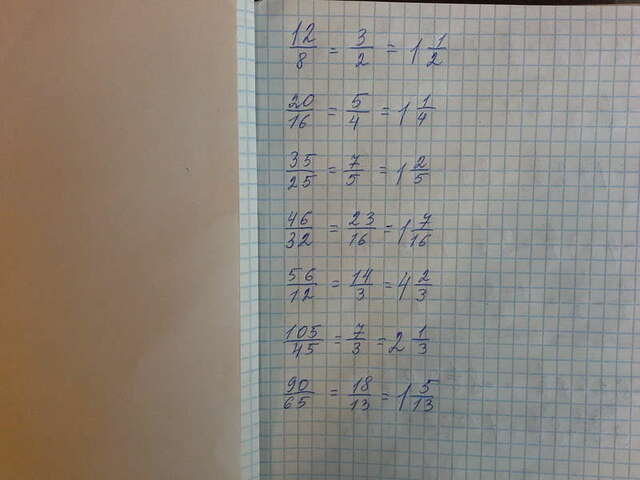 12/8 = 3/2 = 1 1/2
20/16 = 5/4 = 1 1/4
35/25 = 7/5 = 1 2/5
46/32 = 23/16 = 1 7/16
56/12 = 14/3 = 4 2/3
105/45 = 7/3 = 2 1/3
90/65 = 18/13 = 1 5/13